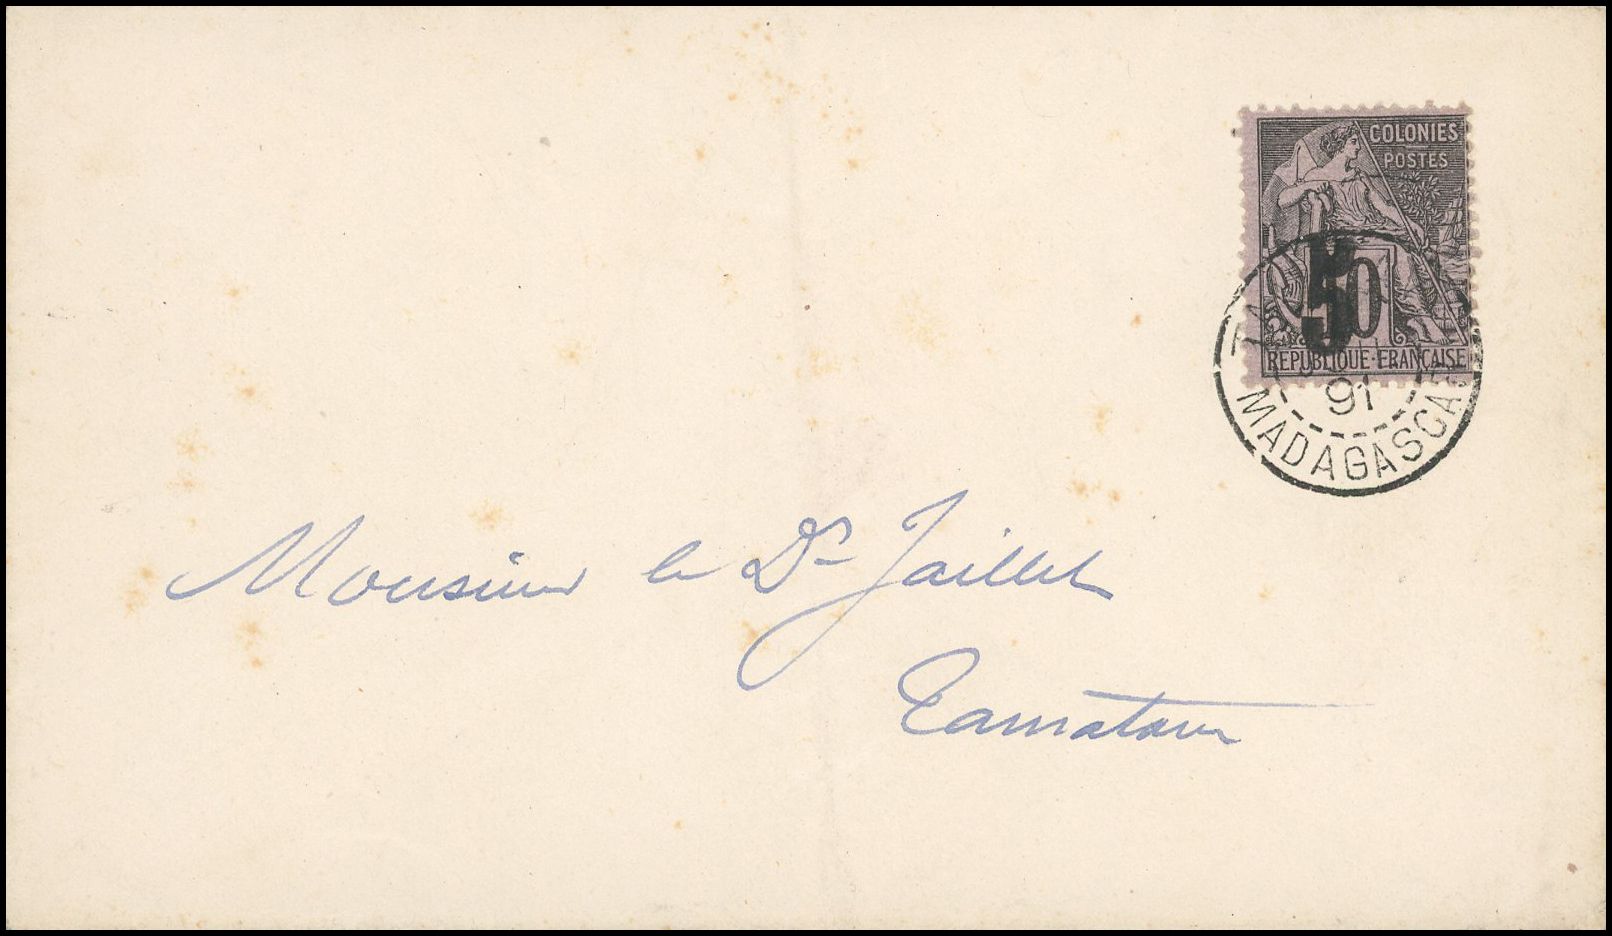 COLONIES
POSTES
5
10
REPUBLIQUE·FRANCAISE
91
MADAGASCAR
Monsieur le Dr Jaillet
Tamatave